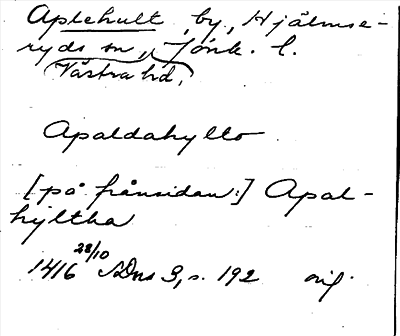 Aplehult by, Hjälmse-
ryds sn, Jönk. l.
Västra hd,
Apaldahylto
[på frånsidan:] Apal-
hyltha
1416 28/10 SDns 3, s. 192 orig.